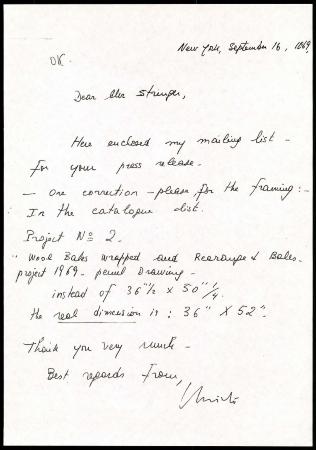 New York, September 16, 1969
OK.
Dear Mr Stringer,
Here enclosed my mailing list -
for your press release -
- one correction - please for the framing: -
In the catalogue list.
Project Nº 2.
"Wool Bales Wrapped and Rearranged Bales -
project 1969 - pencil Drawing -
instead of 36"½ x 50"¼.
the real dimension is: 36" X 52" -
Thank you very much -
Best regards from,
Christo